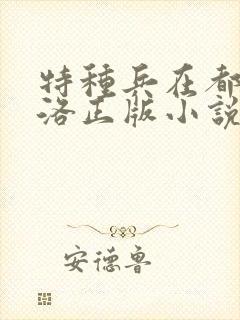 特種兵在都
洛正版小說
安德魯